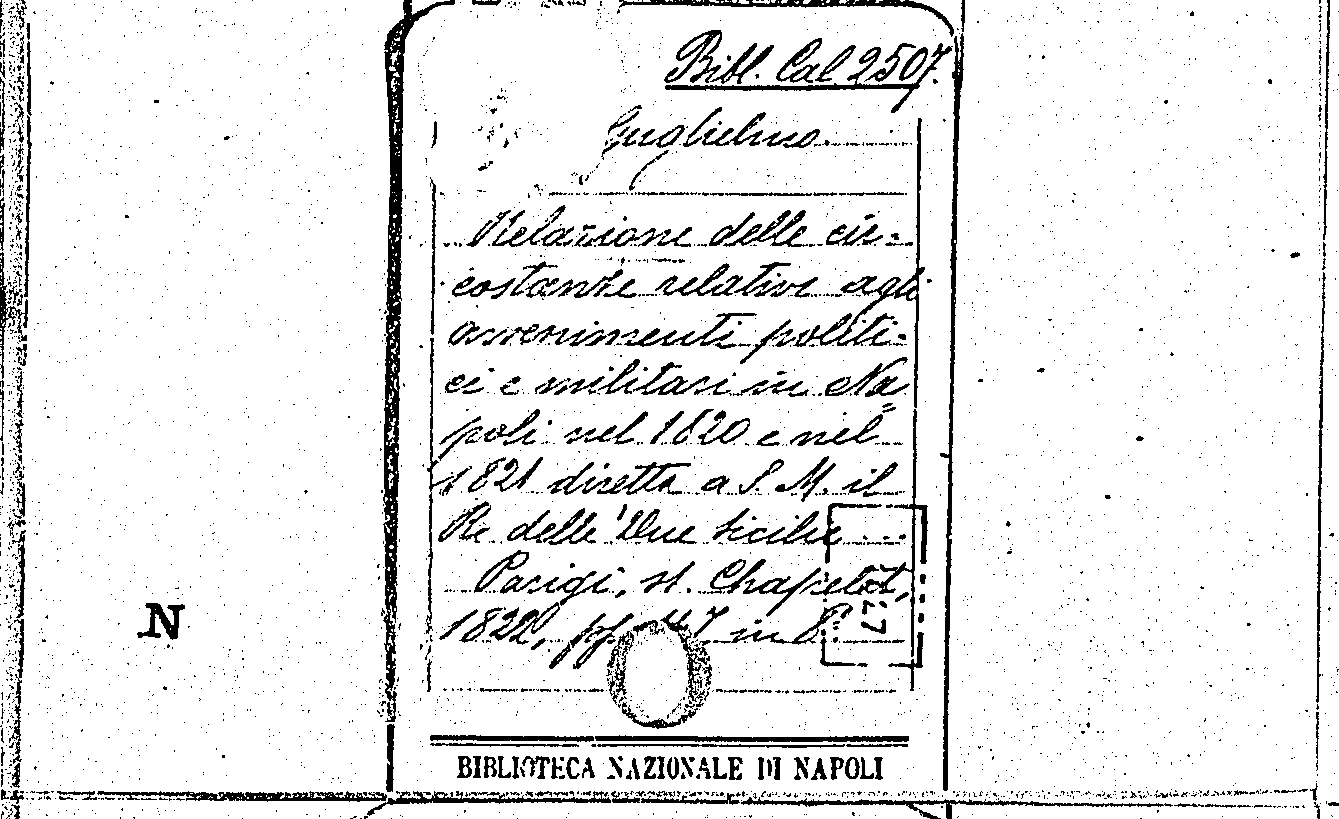 Bibl. Cal 2507.
Guglielmo
Relazione delle cir=
costanze relative agli
avvenimenti politi=
ci e militari in Na=
poli nel 1820 e nel
1821 diretta a S. M. il
Re delle Due Sicilie ...
Parigi, st. Chapelot,
1822, pp. 47 in 8º
N
BIBLIOTECA NAZIONALE DI NAPOLI